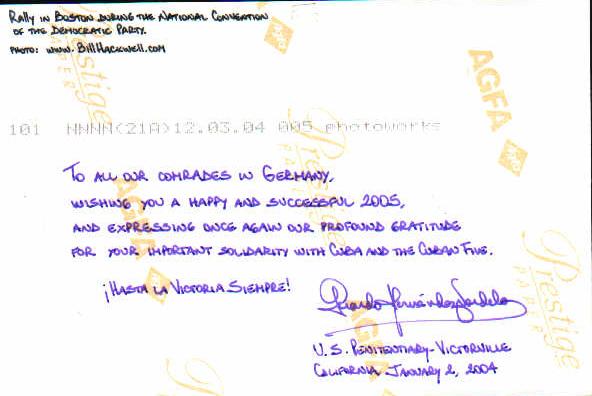 Rally in Boston during the National Convention
of the Democratic Party.
Photo: www.BillHackwell.com
Prestige
PAPER
AGFA
101 NNNN<21A>12.03.04 005 photoworks
To all our comrades in Germany,
wishing you a happy and successful 2005,
and expressing once again our profound gratitude
for your important solidarity with Cuba and the Cuban Five.
¡Hasta la Victoria Siempre!
AGFA
Prestige
PAPER
AGFA
Prestige
U.S. Penitentiary-Victorville
California. January 2, 2004